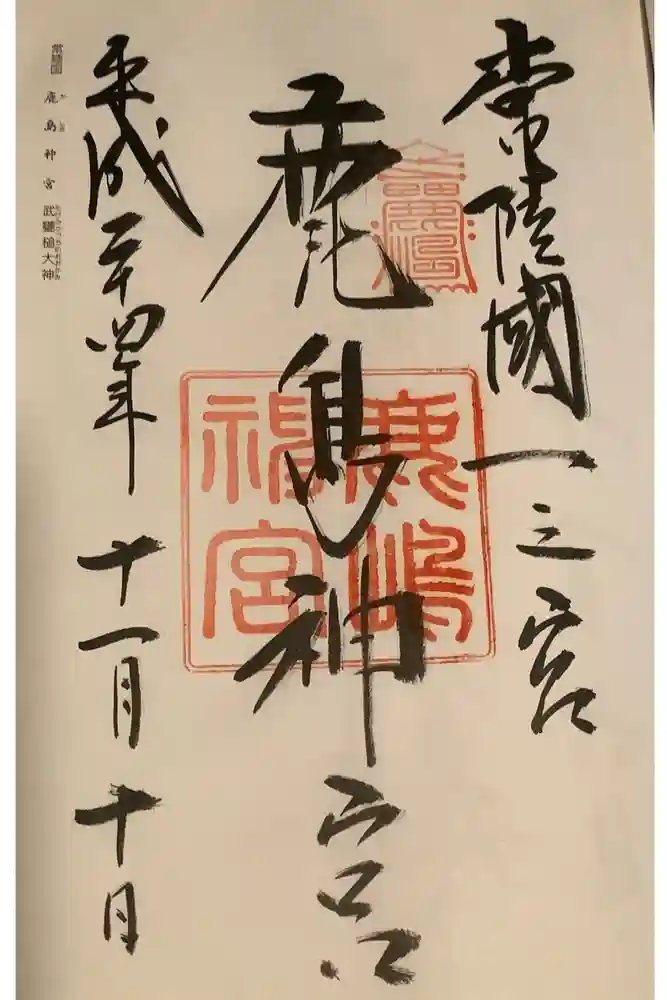 常陸國一之宮
鹿島神宮
鹿嶋神宮
平成二十四年 十一月 十日
常陸国 鹿島神宮 武甕槌大神